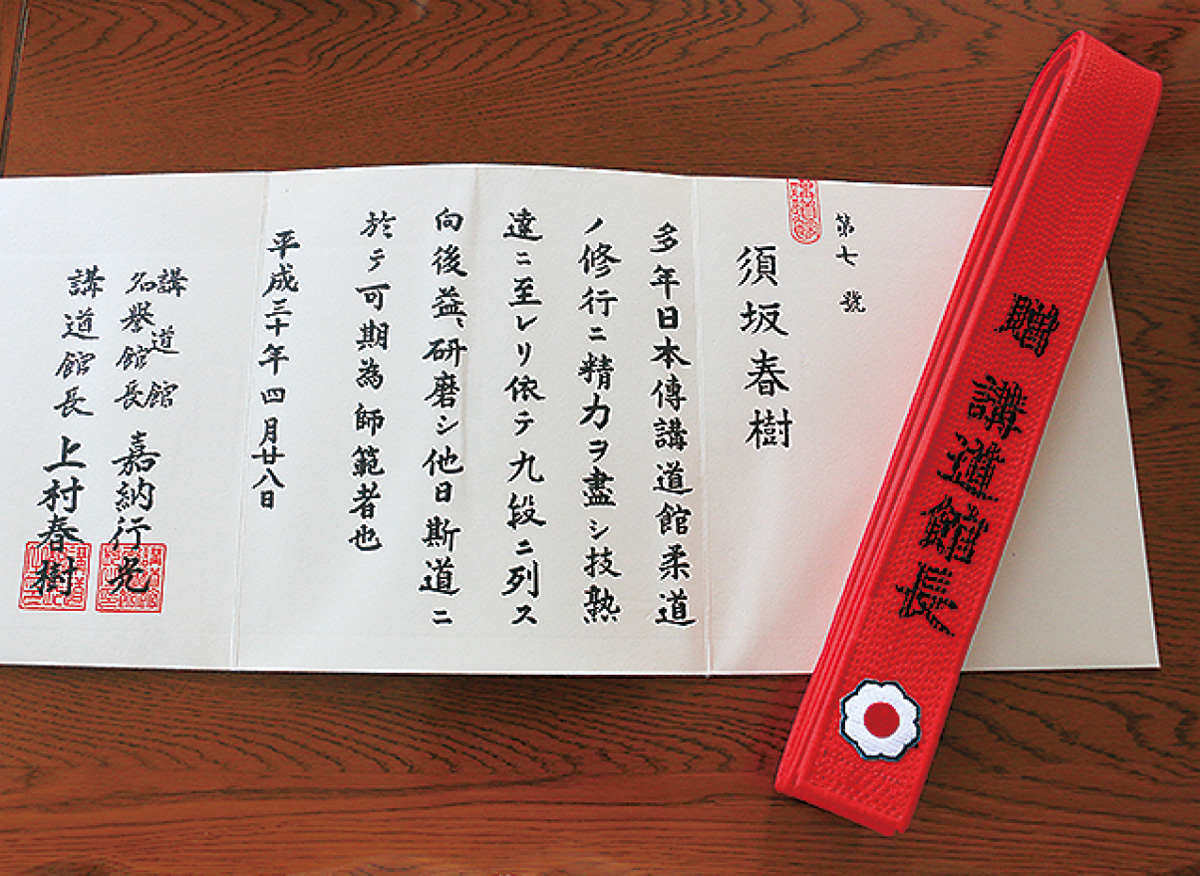 第七號
須坂春樹
多年日本傳講道館柔道
ノ修行ニ精力ヲ盡シ技熟
達ニ至レリ依テ九段ニ列ス
向後益〻研磨シ他日斯道ニ
於テ可期為師範者也
平成三十年四月廿八日
講道館
名誉館長 嘉納行光
講道館長 上村春樹
贈 講道館長